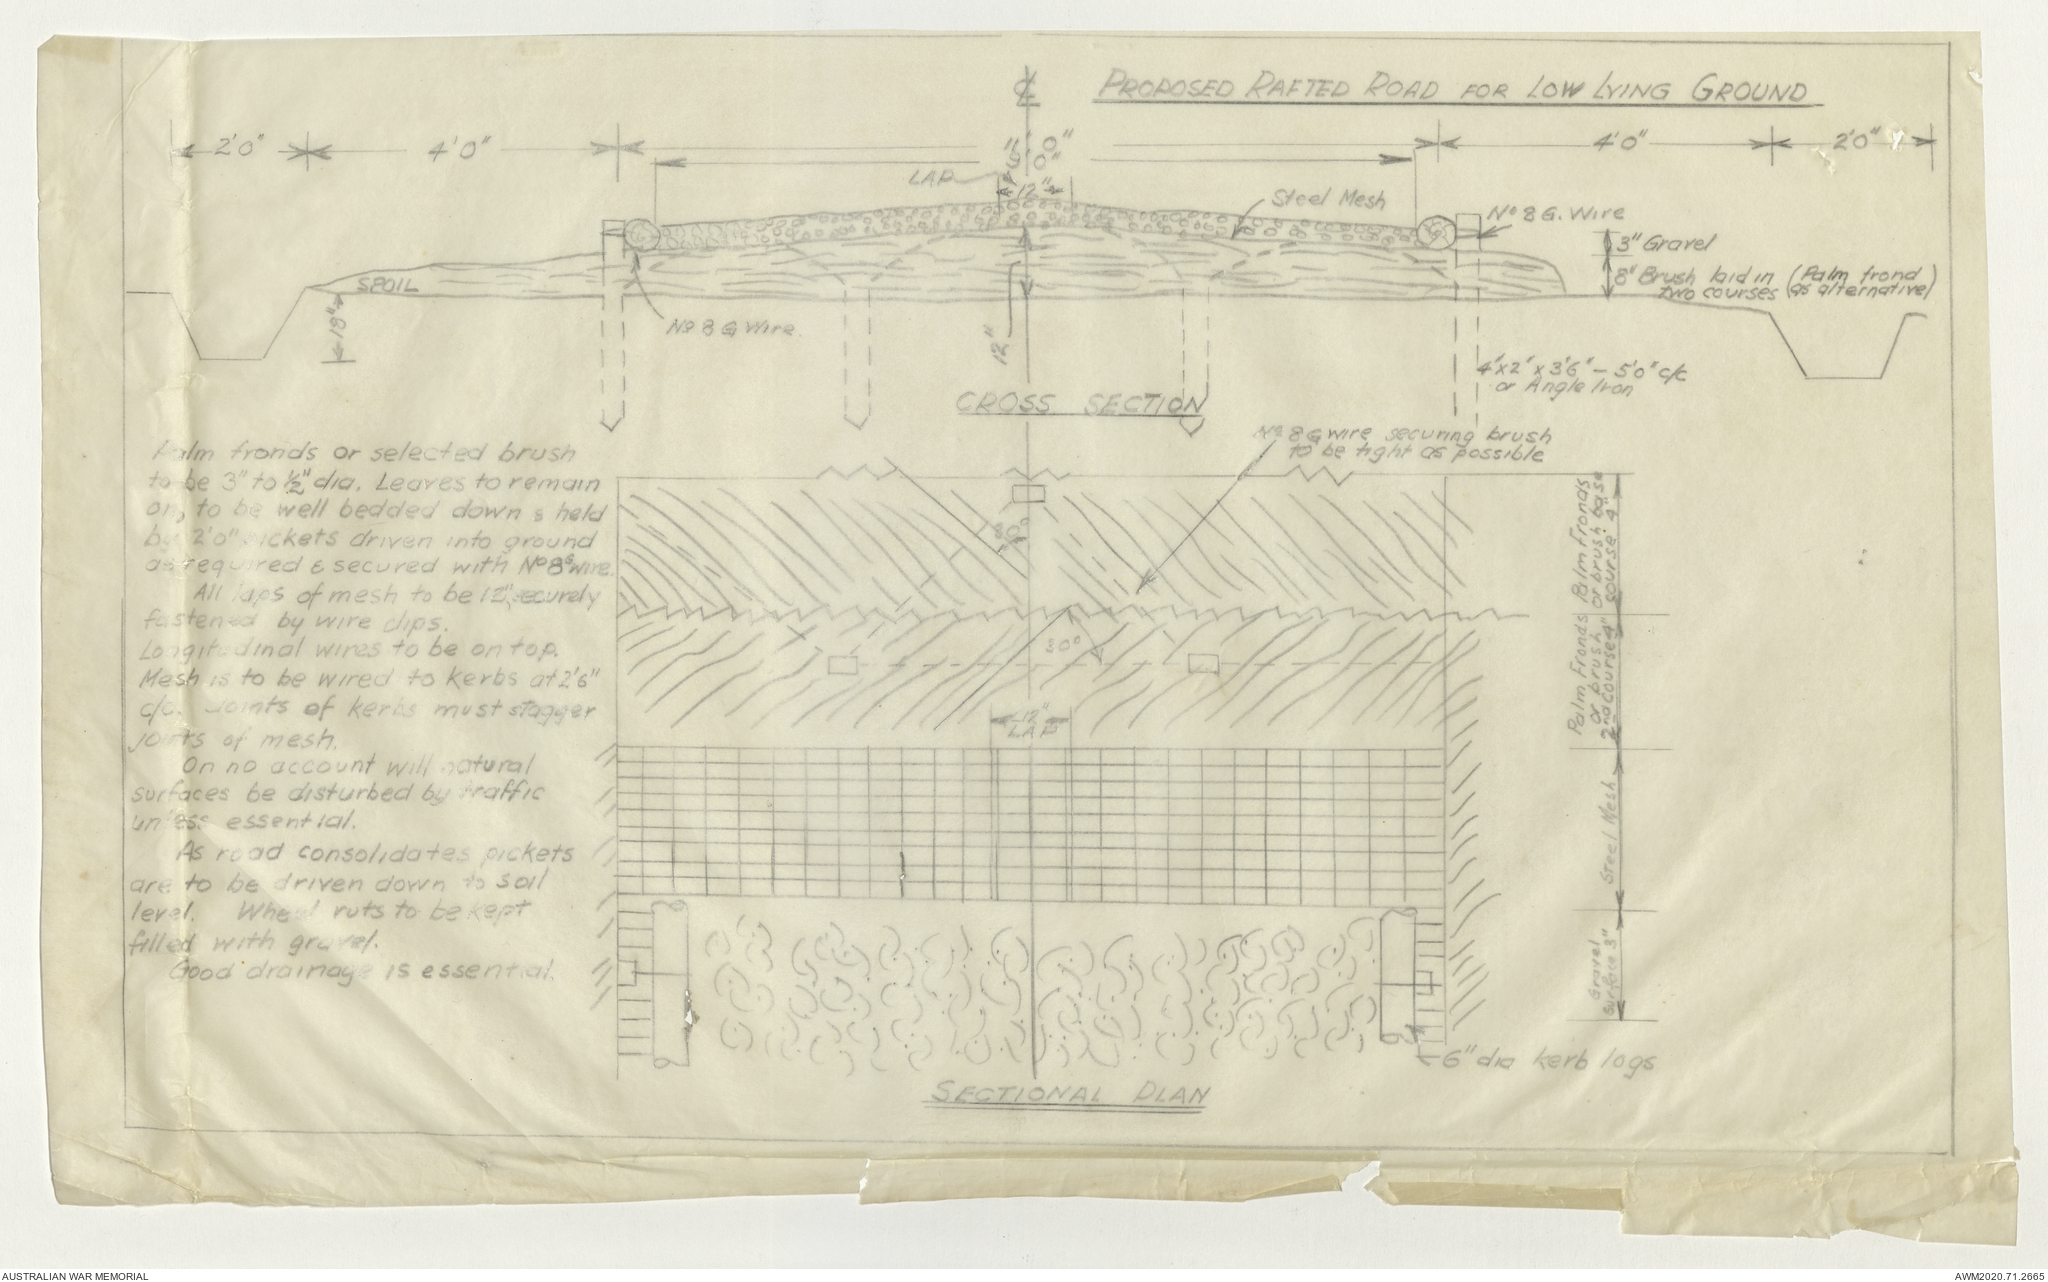 PROPOSED RAFTED ROAD FOR LOW LYING GROUND
2'0"
4'0"
4'0"
2'0"
LAP
12"
Steel Mesh
No 8 G. Wire
3" Gravel
8" Brush laid in (Palm frond
two courses as alternative)
SPOIL
18"
No 8 G Wire
12"
4"x2"x3'6" — 5'0" c/c
or Angle Iron
CROSS SECTION
No 8 G wire securing brush
to be tight as possible
Palm fronds or selected brush
to be 3" to ½" dia. Leaves to remain
on, to be well bedded down & held
by 2'0" pickets driven into ground
as required & secured with No 8G wire.
All laps of mesh to be 12", securely
fastened by wire clips.
Longitudinal wires to be on top.
Mesh is to be wired to kerbs at 2'6"
c/c. Joints of kerbs must stagger
joints of mesh.
On no account will natural
surfaces be disturbed by traffic
unless essential.
As road consolidates pickets
are to be driven down to soil
level. Wheel ruts to be kept
filled with gravel.
Good drainage is essential.
30°
12"
LAP
Palm Fronds
or brush base
course 4"
Palm Fronds
or brush
2nd course 4"
Steel Mesh
Gravel
Surface 3"
6" dia kerb logs
SECTIONAL PLAN
AUSTRALIAN WAR MEMORIAL
AWM2020.71.2665